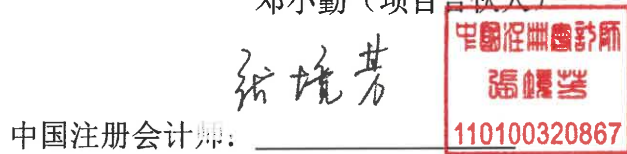 邓小勤（项目合伙人）
张境芳
中国注册会计师
张镜芳
110100320867
中国注册会计师：